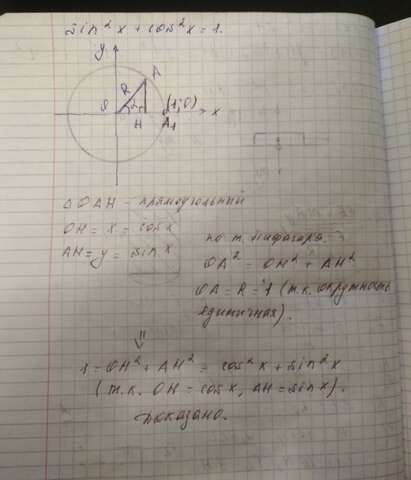 sin²x + cos²x = 1.
y
A
R
(1;0)
H
A₁
x
△OAH - прямоугольный
OH = x = cosx
AH = y = sinx
по т. Пифагора.
OA² = OH² + AH²
OA = R = 1 (т.к. окружность
единичная).
1 = OH² + AH² = cos²x + sin²x
(т.к. OH = cosx, AH = sinx).
Доказано.